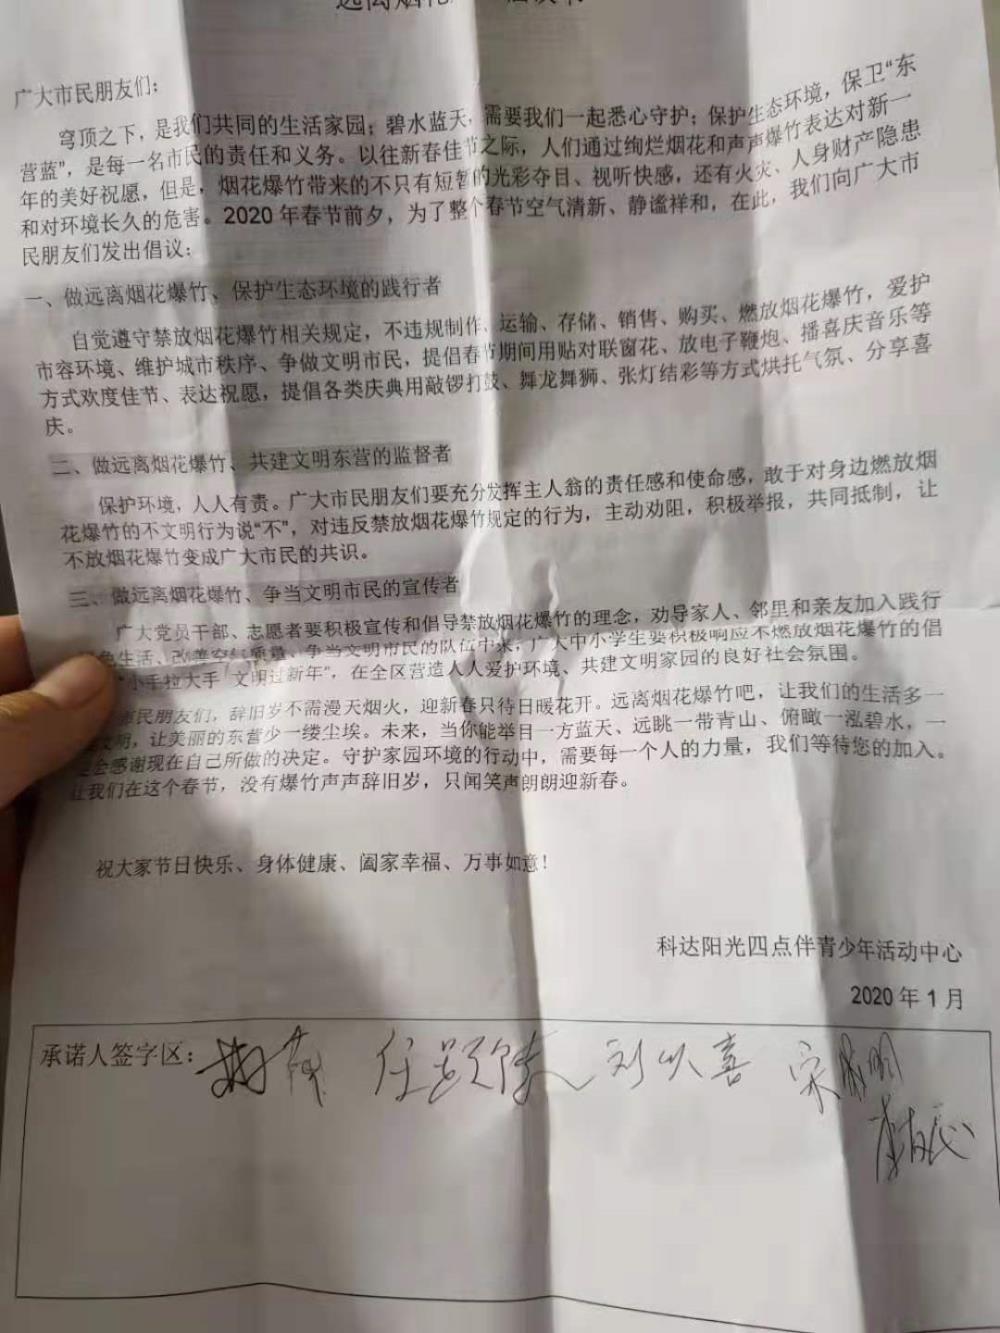 广大市民朋友们：
穹顶之下，是我们共同的生活家园；碧水蓝天，需要我们一起悉心守护；保护生态环境，保卫“东
营蓝”，是每一名市民的责任和义务。以往新春佳节之际，人们通过绚烂烟花和声声爆竹表达对新一
年的美好祝愿，但是，烟花爆竹带来的不只有短暂的光彩夺目、视听快感，还有火灾、人身财产隐患
和对环境长久的危害。2020年春节前夕，为了整个春节空气清新、静谧祥和，在此，我们向广大市
民朋友们发出倡议：
一、做远离烟花爆竹、保护生态环境的践行者
自觉遵守禁放烟花爆竹相关规定，不违规制作、运输、存储、销售、购买、燃放烟花爆竹，爱护
市容环境、维护城市秩序、争做文明市民，提倡春节期间用贴对联窗花、放电子鞭炮、播喜庆音乐等
方式欢度佳节、表达祝愿，提倡各类庆典用敲锣打鼓、舞龙舞狮、张灯结彩等方式烘托气氛、分享喜
庆。
二、做远离烟花爆竹、共建文明东营的监督者
保护环境，人人有责。广大市民朋友们要充分发挥主人翁的责任感和使命感，敢于对身边燃放烟
花爆竹的不文明行为说“不”，对违反禁放烟花爆竹规定的行为，主动劝阻，积极举报，共同抵制，让
不放烟花爆竹变成广大市民的共识。
三、做远离烟花爆竹、争当文明市民的宣传者
广大党员干部、志愿者要积极宣传和倡导禁放烟花爆竹的理念，劝导家人、邻里和亲友加入践行
色生活、改善空气质量、争当文明市民的队伍中来，广大中小学生要积极响应不燃放烟花爆竹的倡
“小手拉大手 文明过新年”，在全区营造人人爱护环境、共建文明家园的良好社会氛围。
市民朋友们，辞旧岁不需漫天烟火，迎新春只待日暖花开。远离烟花爆竹吧，让我们的生活多一
文明，让美丽的东营少一缕尘埃。未来，当你能举目一方蓝天、远眺一带青山、俯瞰一泓碧水，一
会感谢现在自己所做的决定。守护家园环境的行动中，需要每一个人的力量，我们等待您的加入。
让我们在这个春节，没有爆竹声声辞旧岁，只闻笑声朗朗迎新春。
祝大家节日快乐、身体健康、阖家幸福、万事如意！
科达阳光四点伴青少年活动中心
2020年1月
承诺人签字区： 刘以喜